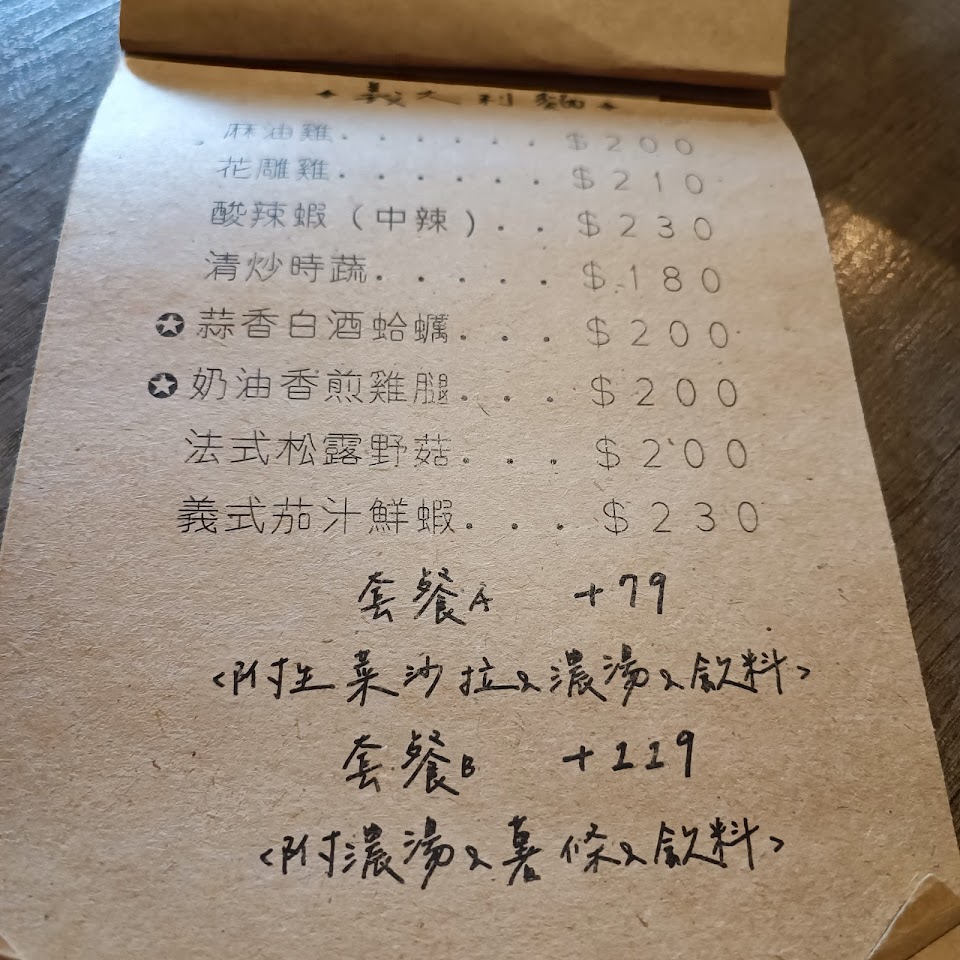 ✦義大利麵✦
麻油雞......$200
花雕雞......$210
酸辣蝦(中辣)..$230
清炒時蔬.....$180
✪蒜香白酒蛤蠣...$200
✪奶油香煎雞腿...$200
法式松露野菇...$200
義式茄汁鮮蝦...$230
套餐A +79
<附生菜沙拉、濃湯、飲料>
套餐B +119
<附濃湯、薯條、飲料>